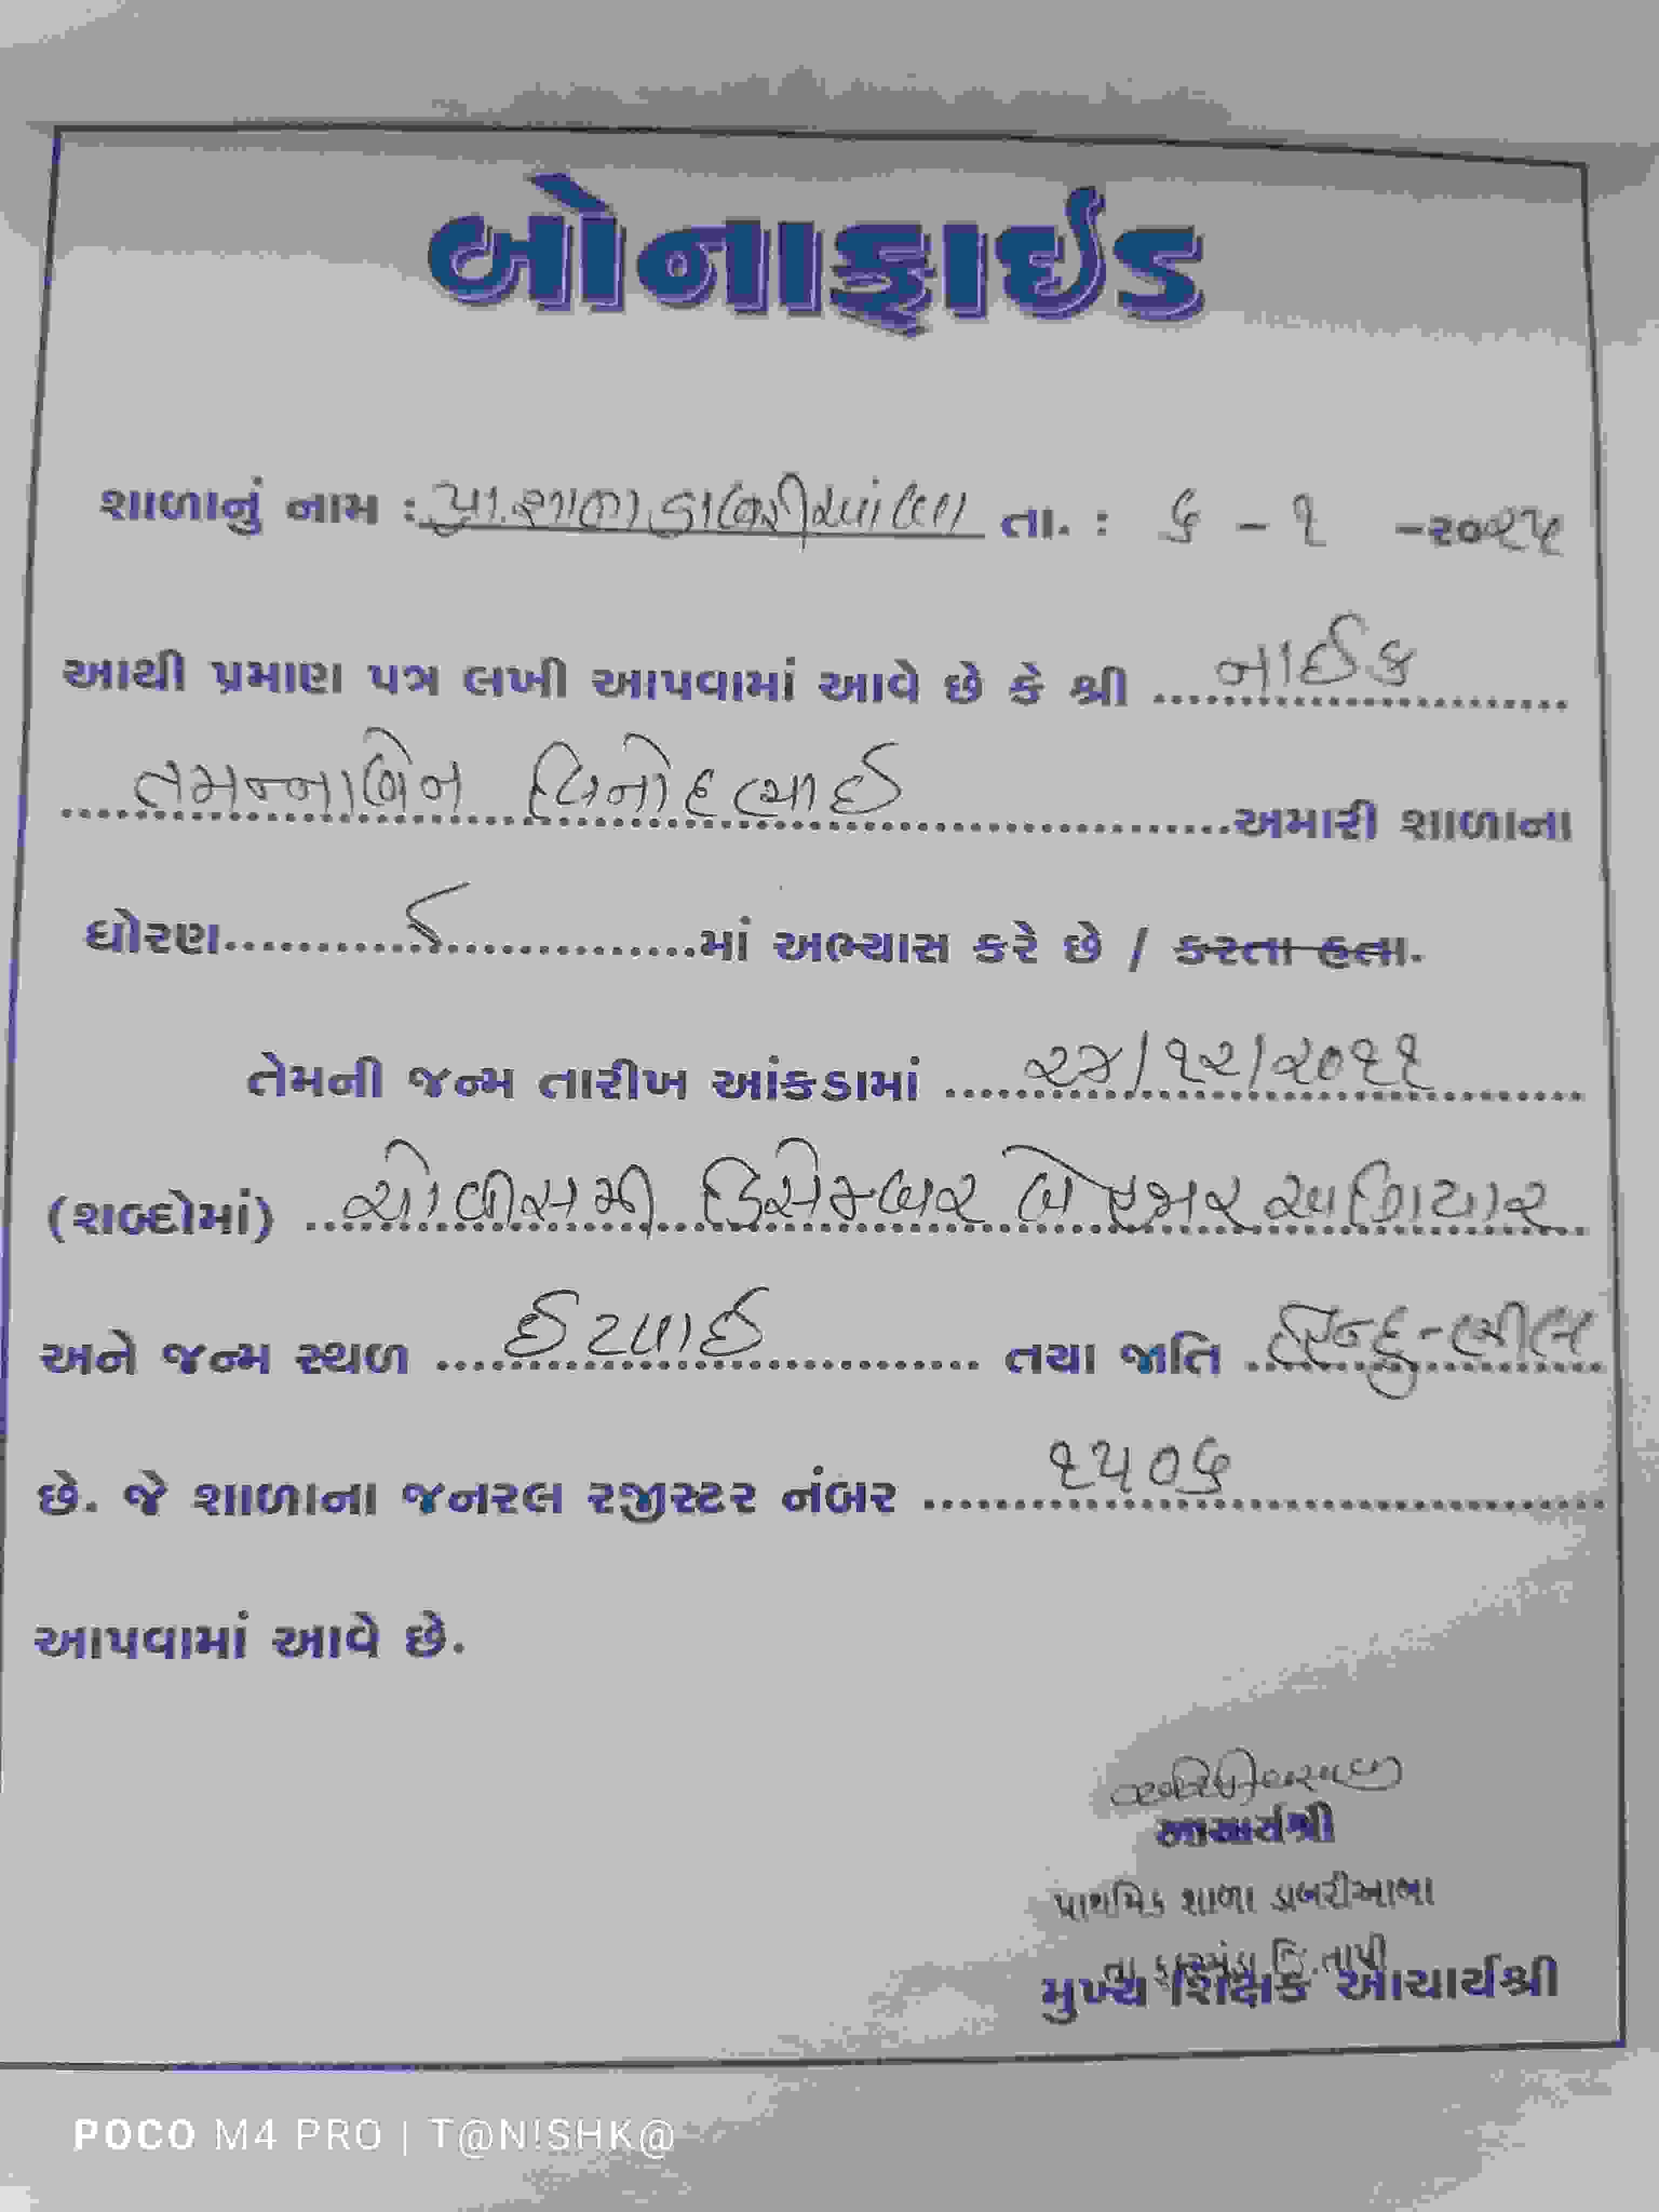 બોનાફાઈડ
શાળાનું નામ : પ્રા.શાળા ડાબરીઆંબા તા. : ૬ - ૧ -૨૦૨૫
આથી પ્રમાણ પત્ર લખી આપવામાં આવે છે કે શ્રી ..... નાઈક
તમન્નાબેન વિનોદભાઈ ..... અમારી શાળાના
ધોરણ..... ૮ .....માં અભ્યાસ કરે છે / કરતા હતા.
તેમની જન્મ તારીખ આંકડામાં ..... ૨૪/૧૨/૨૦૧૧
(શબ્દોમાં) ..... ચોવીસમી ડિસેમ્બર બે હજાર અગિયાર
અને જન્મ સ્થળ ..... ઈટવાઈ ..... તથા જાતિ ..... હિન્દુ-ભીલ
છે. જે શાળાના જનરલ રજીસ્ટર નંબર ..... ૧૫૦૬
આપવામાં આવે છે.
આચાર્યશ્રી
પ્રાથમિક શાળા ડાબરીઆંબા
જિ.તાપી
મુખ્ય શિક્ષક આચાર્યશ્રી
POCO M4 PRO | T@N!SHK@